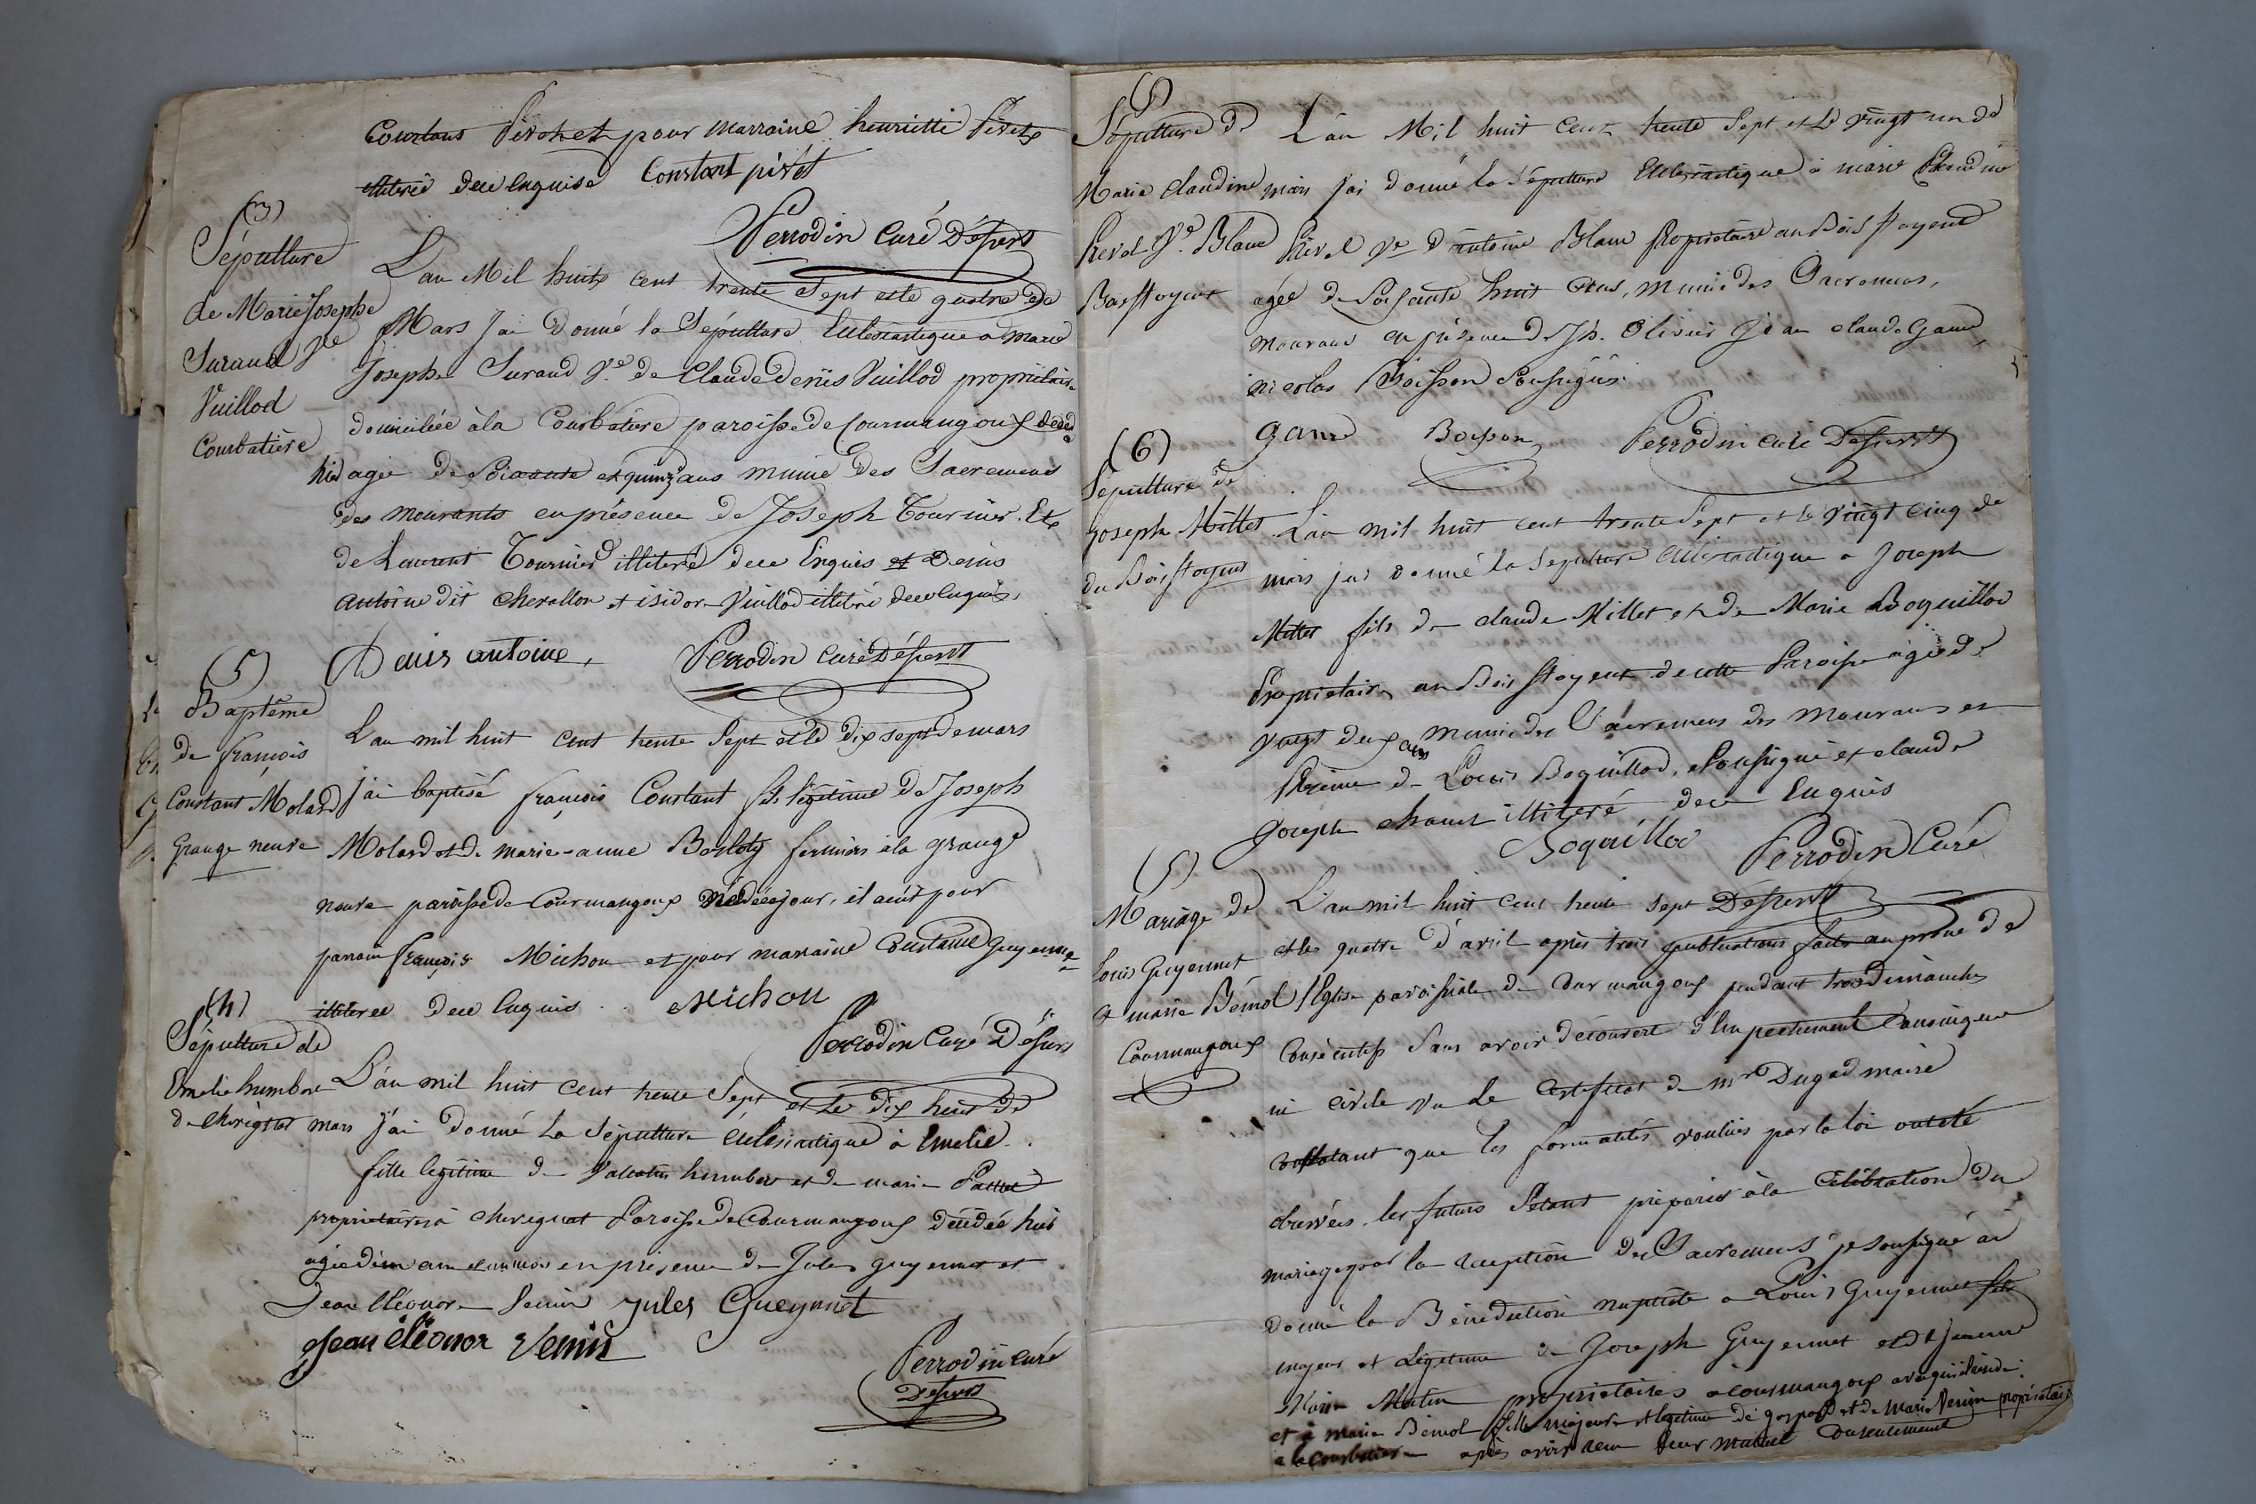 Constans Pirohet pour marraine henriette Pirets
illiterée dece enquise Constant pirot
Perrodin curé Désserv
(3)
Sépulture
de Marie Josephe
Suraud Ve
Vuillod
Courbatière
L'an Mil huit cent trente sept et le quatre de
Mars j'ai donné la Sépulture Eclesiastique a marie
Josephe Suraud Ve de Claude denis Vuillod propriétaire
domiciliée à la Courbatière paroisse de Courmangoux décédé
hier agée de Soixante et quinze ans munie des Sacremens
des mourants en présence de Joseph Tournier Et
de Laurent Tournier illiteré dece Enquis et Denis
antoine dit chevallon et isidor Vuillod illitéré dece enquis.
Denis antoine. Perrodin curé Désserv
(5)
Baptême
de françois
Constant Molard
Grange neuve
L'an mil huit cent trente Sept et le dix sept de mars
j'ai baptisé françois Constant fils légitime de Joseph
Molard et de marie-anne fermiers à la grange
neuve paroisse de Courmangoux né de ce jour, il a eu pour
parrain françois Michon et pour marraine Constance Guyennet
illiteree dece enquis Michon
Perrodin Curé Désserv
(4)
Sépulture de
Emelie humbert
de chevignat
L'an mil huit cent trente Sept et le dix huit de
mars j'ai donné la Sépulture éclésiastique à Emelie
fille légitime de Valentin humbert et de marie
propriétaires à chevignat Paroisse de Courmangoux décédée hier
agée d'un an et un mois en présence de Jules guyennet et
Jean Eléonor Venin jules Gueynnet
Jean éléonor Venin
Perrodin curé
Desserv
(5)
Sépulture de
Marie claudine
Pirel Ve Blanc
Boissoyeux
L'an Mil huit cent trente Sept et le vingt un de
mars j'ai donné la Sépulture Eclesiastique à marie Claudine
Ve d'antoine Blanc Propriétaire au Bois
agée de Soisante huit ans, munie des Sacremens,
mourans en présence de Jh. Olivier Jean claude Ganne
nicolas Boisson Soussignés.
ganne Boisson Perrodin curé Desserv
(6)
Sépulture de
Joseph Millet
du Bois
L'an mil huit cent trente Sept et le vingt cinq de
mars j'ai donné la Sepulture éclésiastique a Joseph
Millet fils de claude Millet et de Marie Boquillod
Propriétaires au Bois de cette Paroisse agé de
vingt deux ans muni des Sacremens des mourans en
Présence de Louis Boquillod, Soussigné et claude
Joseph chanel illiteré dece Enquis
Boquillod Perrodin Curé
Désserv
(5)
Mariage de
Louis Guyennet
& marie Bémol
Courmangoux
L'an mil huit cent trente sept
et le quatre d'avril après trois publications faites au prône de
l'Eglise paroissiale de Courmangoux pendant trois dimanches
consécutifs Sans avoir découvert d'Empechement Canonique
ni civile vu le Certificat de mr Dugad maire
constatant que les formalités voulues par la loi ont été
observées. les futurs s'étant préparés à la Célébration du
mariage par la reception des Sacremens je soussigné ai
donné la Bénédiction nuptiale a Louis Guyennet fils
majeur et Légitime de Joseph Guyennet et de Jeanne
Marie Matin propriétaires a courmangoux
et a marie Bémol fille majeure et legitime de gaspard et de Marie Venin propriétaires
a la Courbatière après avoir recu leur mutuel consentement